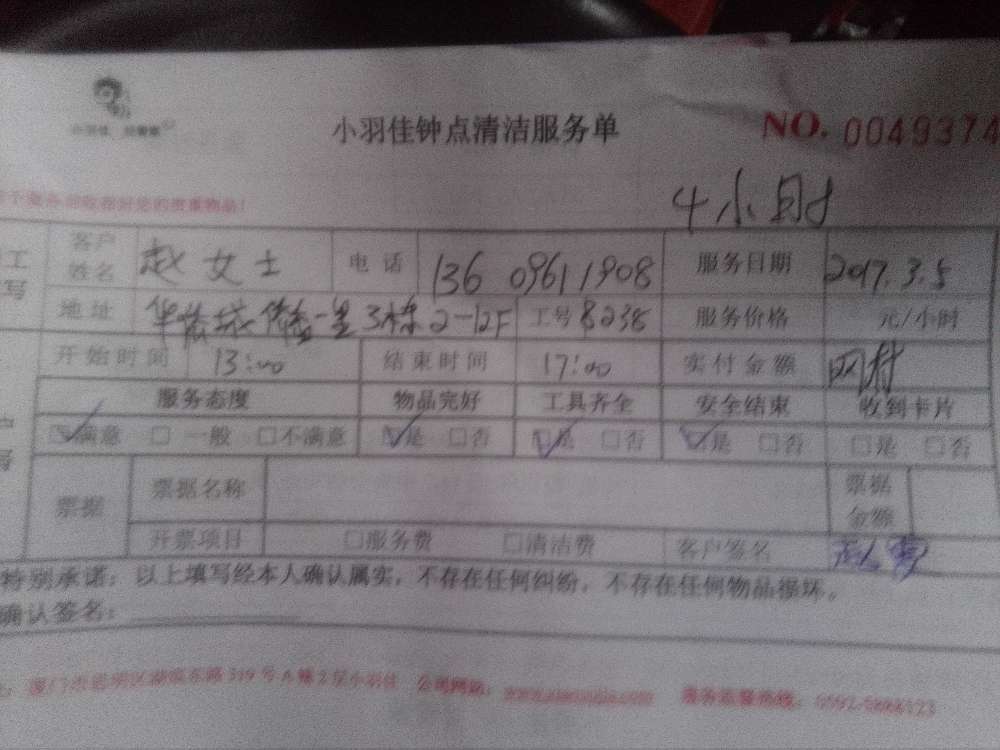 小羽佳钟点清洁服务单 NO. 0049374
4小时
客户姓名 赵女士 电话 136 0961 1908 服务日期 2017.3.5
地址 3栋2-12F 工号 8238 服务价格 元/小时
开始时间 13:00 结束时间 17:00 实付金额 网付
服务态度 物品完好 工具齐全 安全结束 收到卡片
☑满意 □一般 □不满意 ☑是 □否 ☑是 □否 ☑是 □否 □是 □否
票据 票据名称 票据金额
开票项目 □服务费 □清洁费 客户签名
特别承诺：以上填写经本人确认属实，不存在任何纠纷，不存在任何物品损坏。
确认签名：
厦门市思明区湖滨东路319号A幢2层小羽佳 公司网站： 服务监督热线：0592-5888123